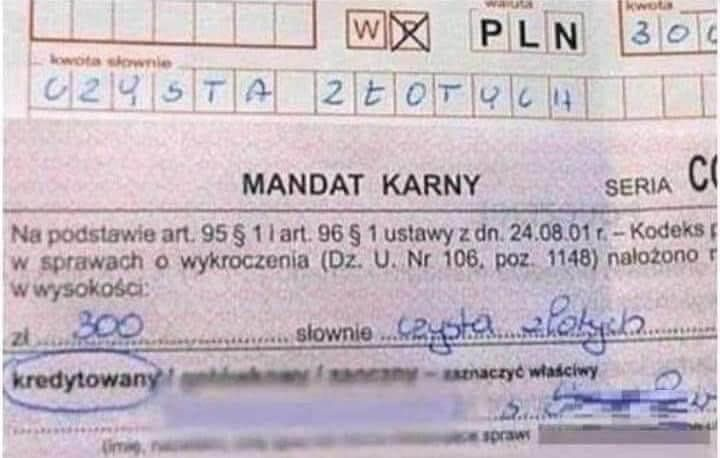 waluta kwota
W PLN 300
kwota słownie
CZYSTA ZŁOTYCH
MANDAT KARNY SERIA
Na podstawie art. 95 § 1 i art. 96 § 1 ustawy z dn. 24.08.01 r. – Kodeks
w sprawach o wykroczenia (Dz. U. Nr 106, poz. 1148) nałożono
w wysokości:
zł 300 słownie czysta złotych
kredytowany / gotówkowy / zaoczny – zaznaczyć właściwy
(imię,